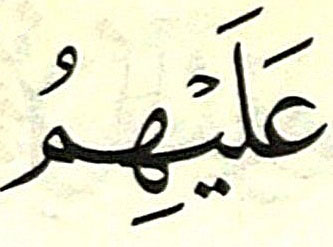 عَلَيْهِمُ